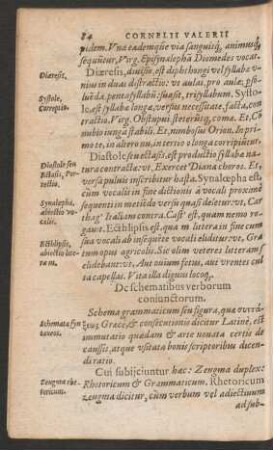 84 CORNELII VALERII
pidem. Vna eademque via sanguisq, animusq
sequuntur, Virg. Episynalepha Diomedes vocat.
Diæresis.
Diæresis, diuisio, est diphthongi vel syllabæ v-
nius in duas distractio: vt aulai, pro aulæ: dis-
soluēda, pentasyllabū: suasit, trisyllabum. Systo-
Systole,
Correptio.
le, est syllabæ longæ, versus necessitate, facta, con-
tractio. Virg. Obstupui steteruntq, comæ. Et, Co-
nubio iungā stabili. Et, nimbosus Orion. In pri-
more, in altero nu, in tertio o longa corripiuntur.
Diastole seu
Ectasis, Pro-
tectio.
Diastole seu ectasis, est productio syllabæ na-
tura contractæ: vt, Exercet Diana choros. Et,
versa puluis inscribitur hasta. Synalœpha est,
Synalœpha,
abiectio vo-
calis.
cum vocalis in fine dictionis à vocali proximè
sequenti in metiēdo versu quasi deletur: vt, Car
thag' Italiam contra. Cas' est, quam nemo ro-
Ecthlipsis,
abiectio lite
ram.
gauit. Ecthlipsis est, qua m littera in fine cum
sua vocali ab insequēte vocali eliditur: vt, Gra-
tum opus agricolis. Sic olim veteres literam s
elidebant: vt, Aut auium fetus, aut vrentes cul
ta capellas. Vita illa dignus locoq,
De schematibus verborum
coniunctorum.
Schema syn-
taxeos.
Schema grammaticum siue figura, quæ συντά-
ξεως Græcè, & constructionis dicitur Latinè, est
immutatio quædam & arte nouata certis de
caussis, atque vsitata bonis scriptoribus dicen-
di ratio.
Cui subijciuntur hæc: Zeugma duplex:
Zeugma rhe-
toricum.
Rhetoricum & Grammaticum. Rhetoricum
zeugma dicitur, cùm verbum vel adiectiuum
ad sub-